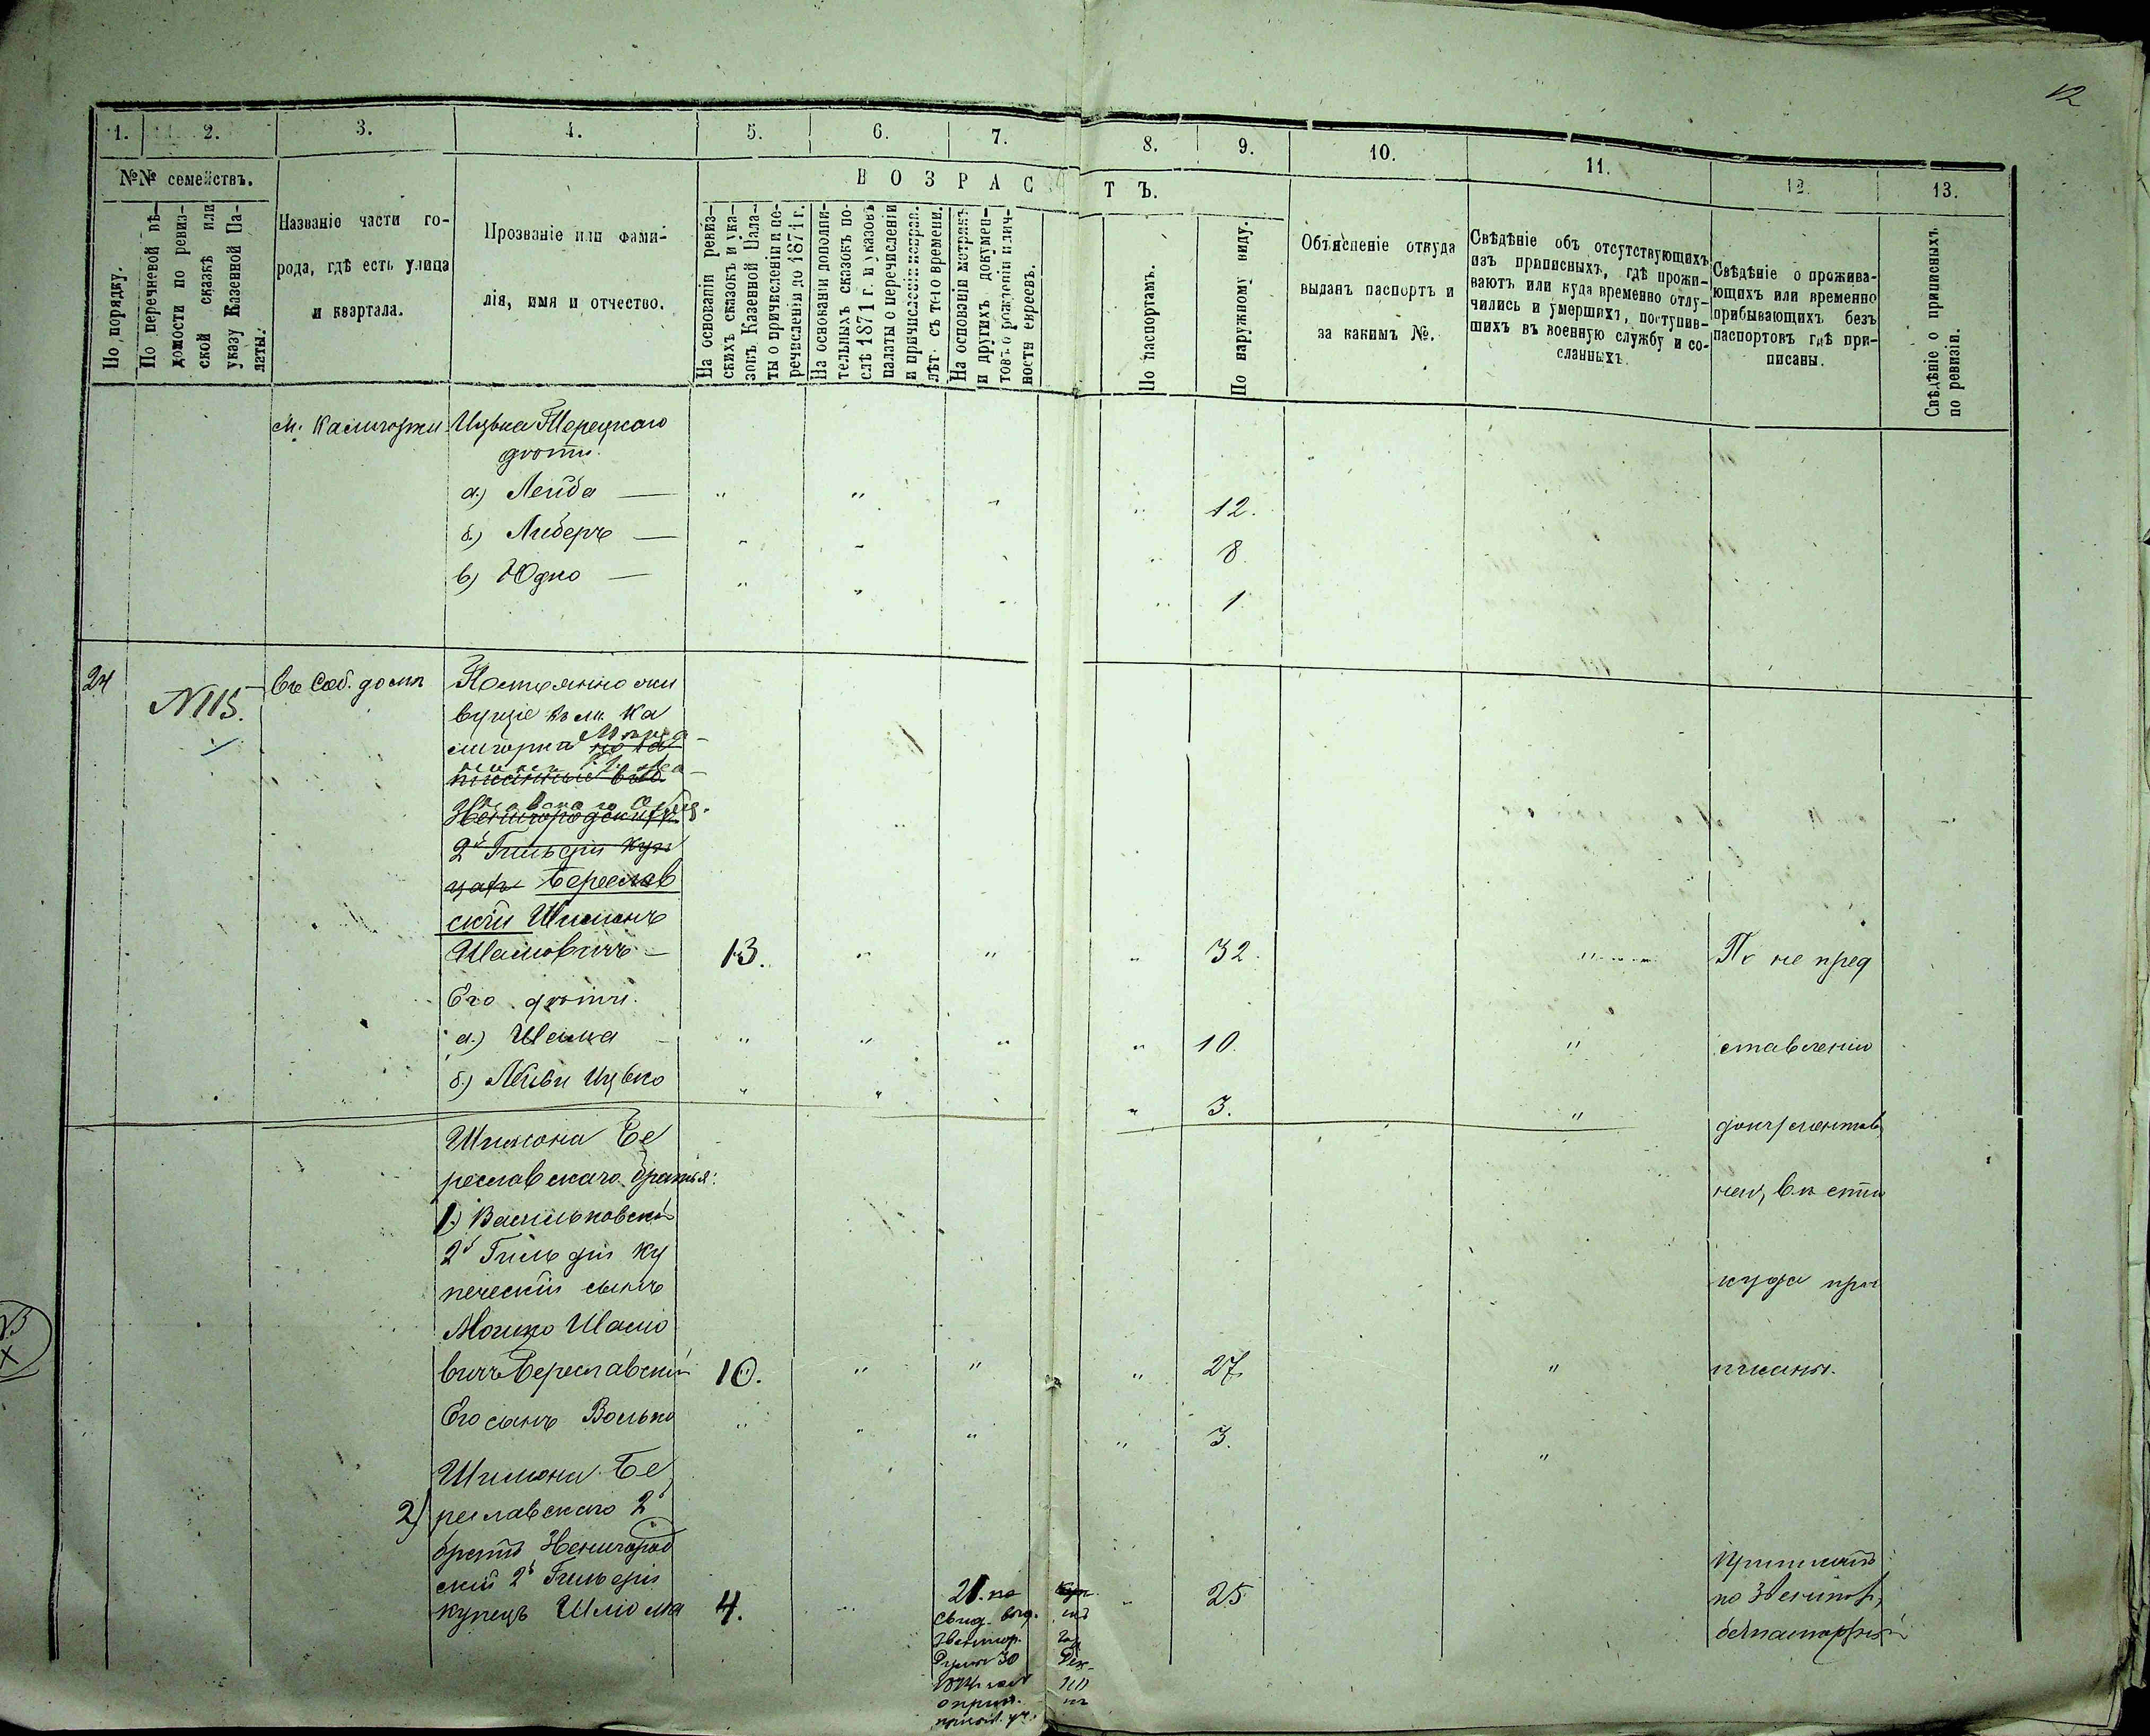 12
1. 2. 3. 4. 5. 6. 7. 8. 9. 10. 11. 12. 13.
№№ семействъ.
По порядку.
По перечневой вѣ-
домости по ревиз-
ской сказкѣ или
указу Казенной Па-
латы.
Названіе части го-
рода, гдѣ есть улица
и квартала.
Прозваніе или фами-
лія, имя и отчество.
ВОЗРАСТЪ.
На основаніи ревиз-
скихъ сказокъ и ука-
зовъ Казенной Пала-
ты о причисленіи и пе-
речисленіи до 1871 г.
На основаніи дополни-
тельныхъ сказокъ по-
слѣ 1871 г. и указовъ
палаты о перечисленіи
и причисленіи неправ.
лѣт. съ того времени.
На основаніи метрикъ
и другихъ докумен-
товъ о рожденіи и лич-
ности евреевъ.
По паспортамъ.
По наружному виду.
Объясненіе откуда
выданъ паспортъ и
за какимъ №.
Свѣдѣніе объ отсутствующихъ
изъ приписныхъ, гдѣ прожи-
ваютъ или куда временно отлу-
чились и умершихъ, поступив-
шихъ въ военную службу и со-
сланныхъ.
Свѣдѣніе о прожива-
ющихъ или временно
прибывающихъ безъ
паспортовъ гдѣ при-
писаны.
Свѣдѣніе о приписныхъ
по ревизіи.
м. Калигорки Ицька Терецкаго
дѣти.
а.) Лейба — " " " " 12.
б.) Либеръ — " " " " 8
в) Юдко — " " " " 1
24 N 115. въ Соб. домѣ Постоянно жи
вущіе въ м. Ка
лигоркѣ
Звенигородскій
2й Гильдіи куп
цах Береслав
скій Шимонъ
Шамовичъ — 13. " " " 32. " По не пред
Его дѣти.
а.) Шама — " " " " 10. " ставленію
б.) Лейви Ицько " " " " 3. " документовъ
Шимона Бе
реславскаго братья:
1.) Васильковскій
2й Гильдіи ку
куда при
печескій сынъ
Мошко Шамо
вичъ Береславскій 10. " " " 27 " писаны.
Его сынъ Волько " " " " 3. "
Шимона Бе
2) реславскаго 2й
братъ Звенигород
скій 2й Гильдіи
купецъ Шліома 4. " 21. по " 25
Свид. выд.
Звенигор.
Думою 30
Приписанъ
по Звенигор.
безпаспортный